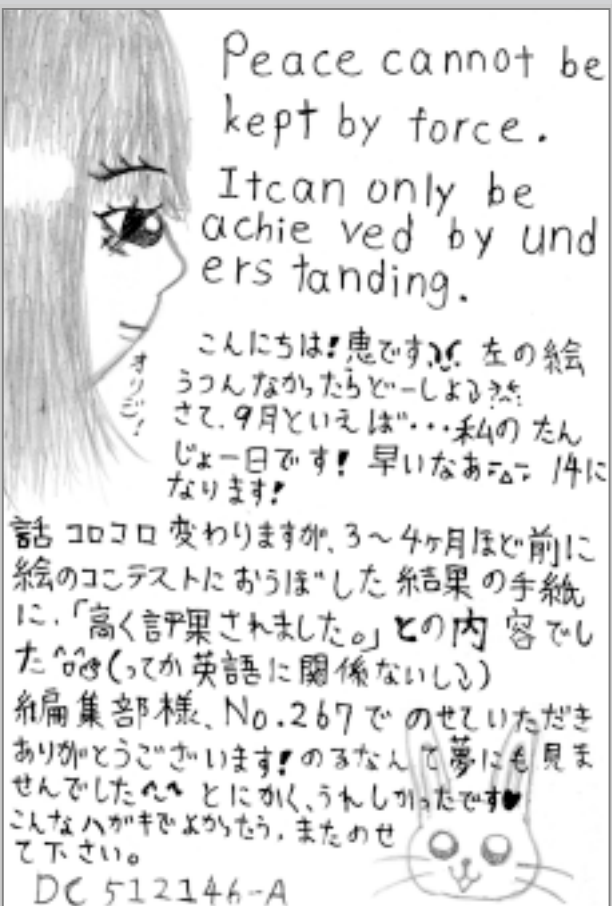 Peace cannot be
kept by force.
Itcan only be
achie ved by und
ers tanding.
オリジ!
こんにちは!恵です 左の絵
うつんなかったらどーしよる
さて、9月といえば・・・私のたん
じょー日です!早いなあ 14に
なります!
話コロコロ変わりますが、3～4ヶ月ほど前に
絵のコンテストにおうぼした結果の手紙
に、「高く評果されました。」との内容でし
た^o^(ってか英語に関係ないしる)
編集部様、No.267でのせていただき
ありがとうございます!のるなんて夢にも見ま
せんでした^^ とにかく、うれしかったです♥
こんなハガキでよかったら、またのせ
て下さい。
DC 512146-A